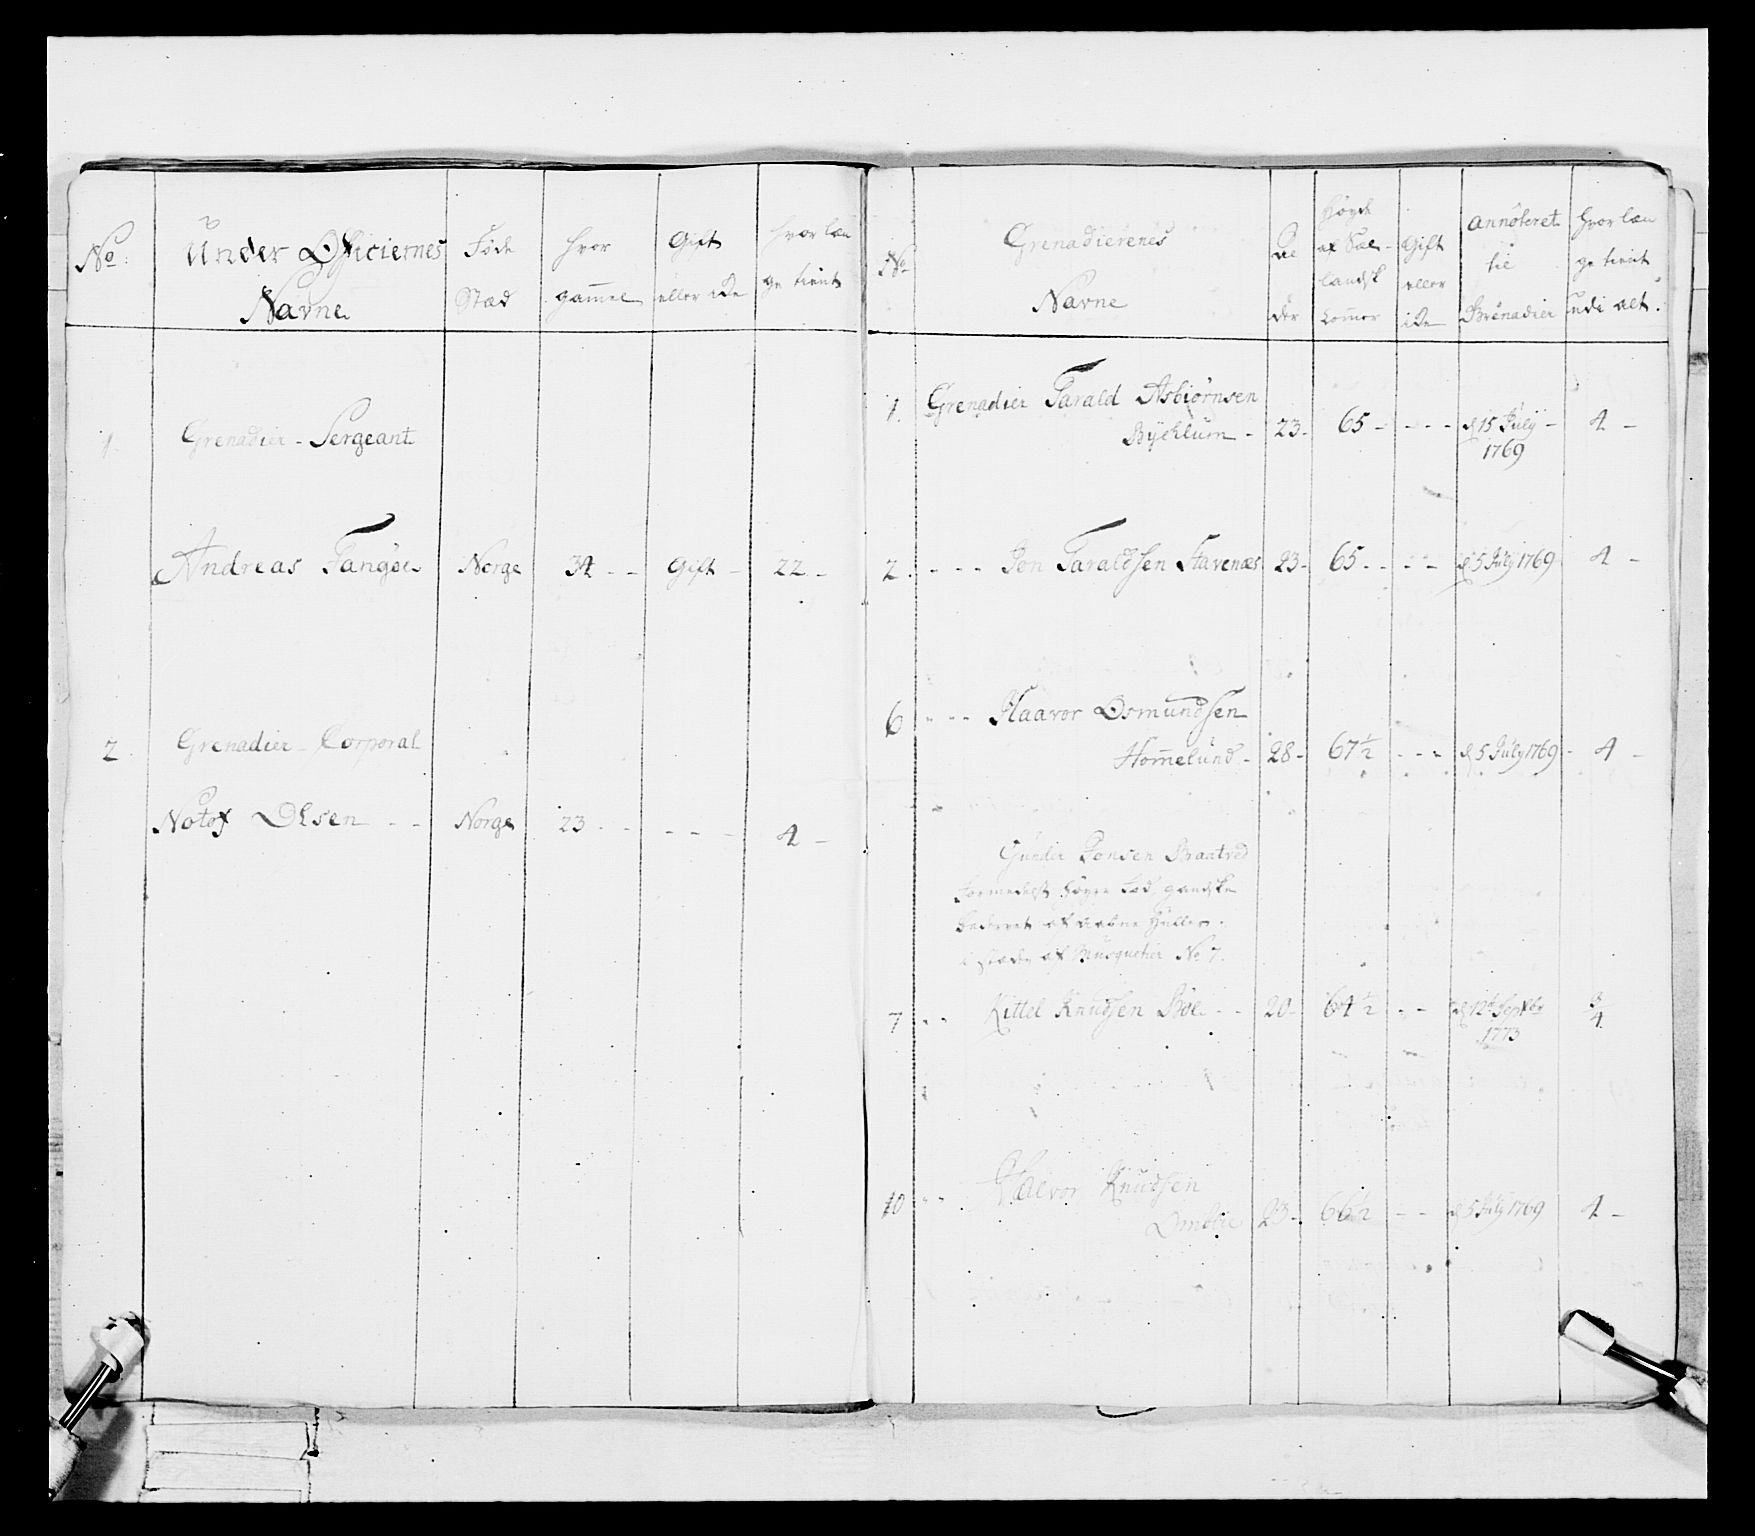 No. Under Officiernes Navne Føde Stæd hvor gammel Gift eller icke hvor læn ge tient
1. Grenadier - Sergeant
Andreas Tangøe Norge 34 - - Gift - 22 -
2. Grenadier - Corporal
Notof Olsen - - Norge 23 - - - - - 4 -
No Grenadierenes Navne Al der Høyde af Sæl- landsk Tommer Gift eller icke annoteret til Grenadier hvor læn ge tient udi alt.
1. Grenadier Tarald Asbiørnsen
Byeklum - 23 - 65 - - - - d 15 July - 4 -
1769
2. - - - Jon Taraldsen Stavenæs 23 - 65 - - - - d 5 July 1769 4 -
6 - - - Haavor Osmundsen
Hommelund - 28 - 67½ - - - d 5 July 1769 - 4 -
Gunder Jonsen Braatved
formedelst høyre Fod gandske
bedervet af aabne Huller.
i stæden af Musquetier No 7.
7 - - Kittel Knudsen Bøe - - 20 - 64½ - - d 12t Septbr 3/4
1773
10 - - Halvor Knudsen
23 - 66½ - - d 5 July 1769 4 -